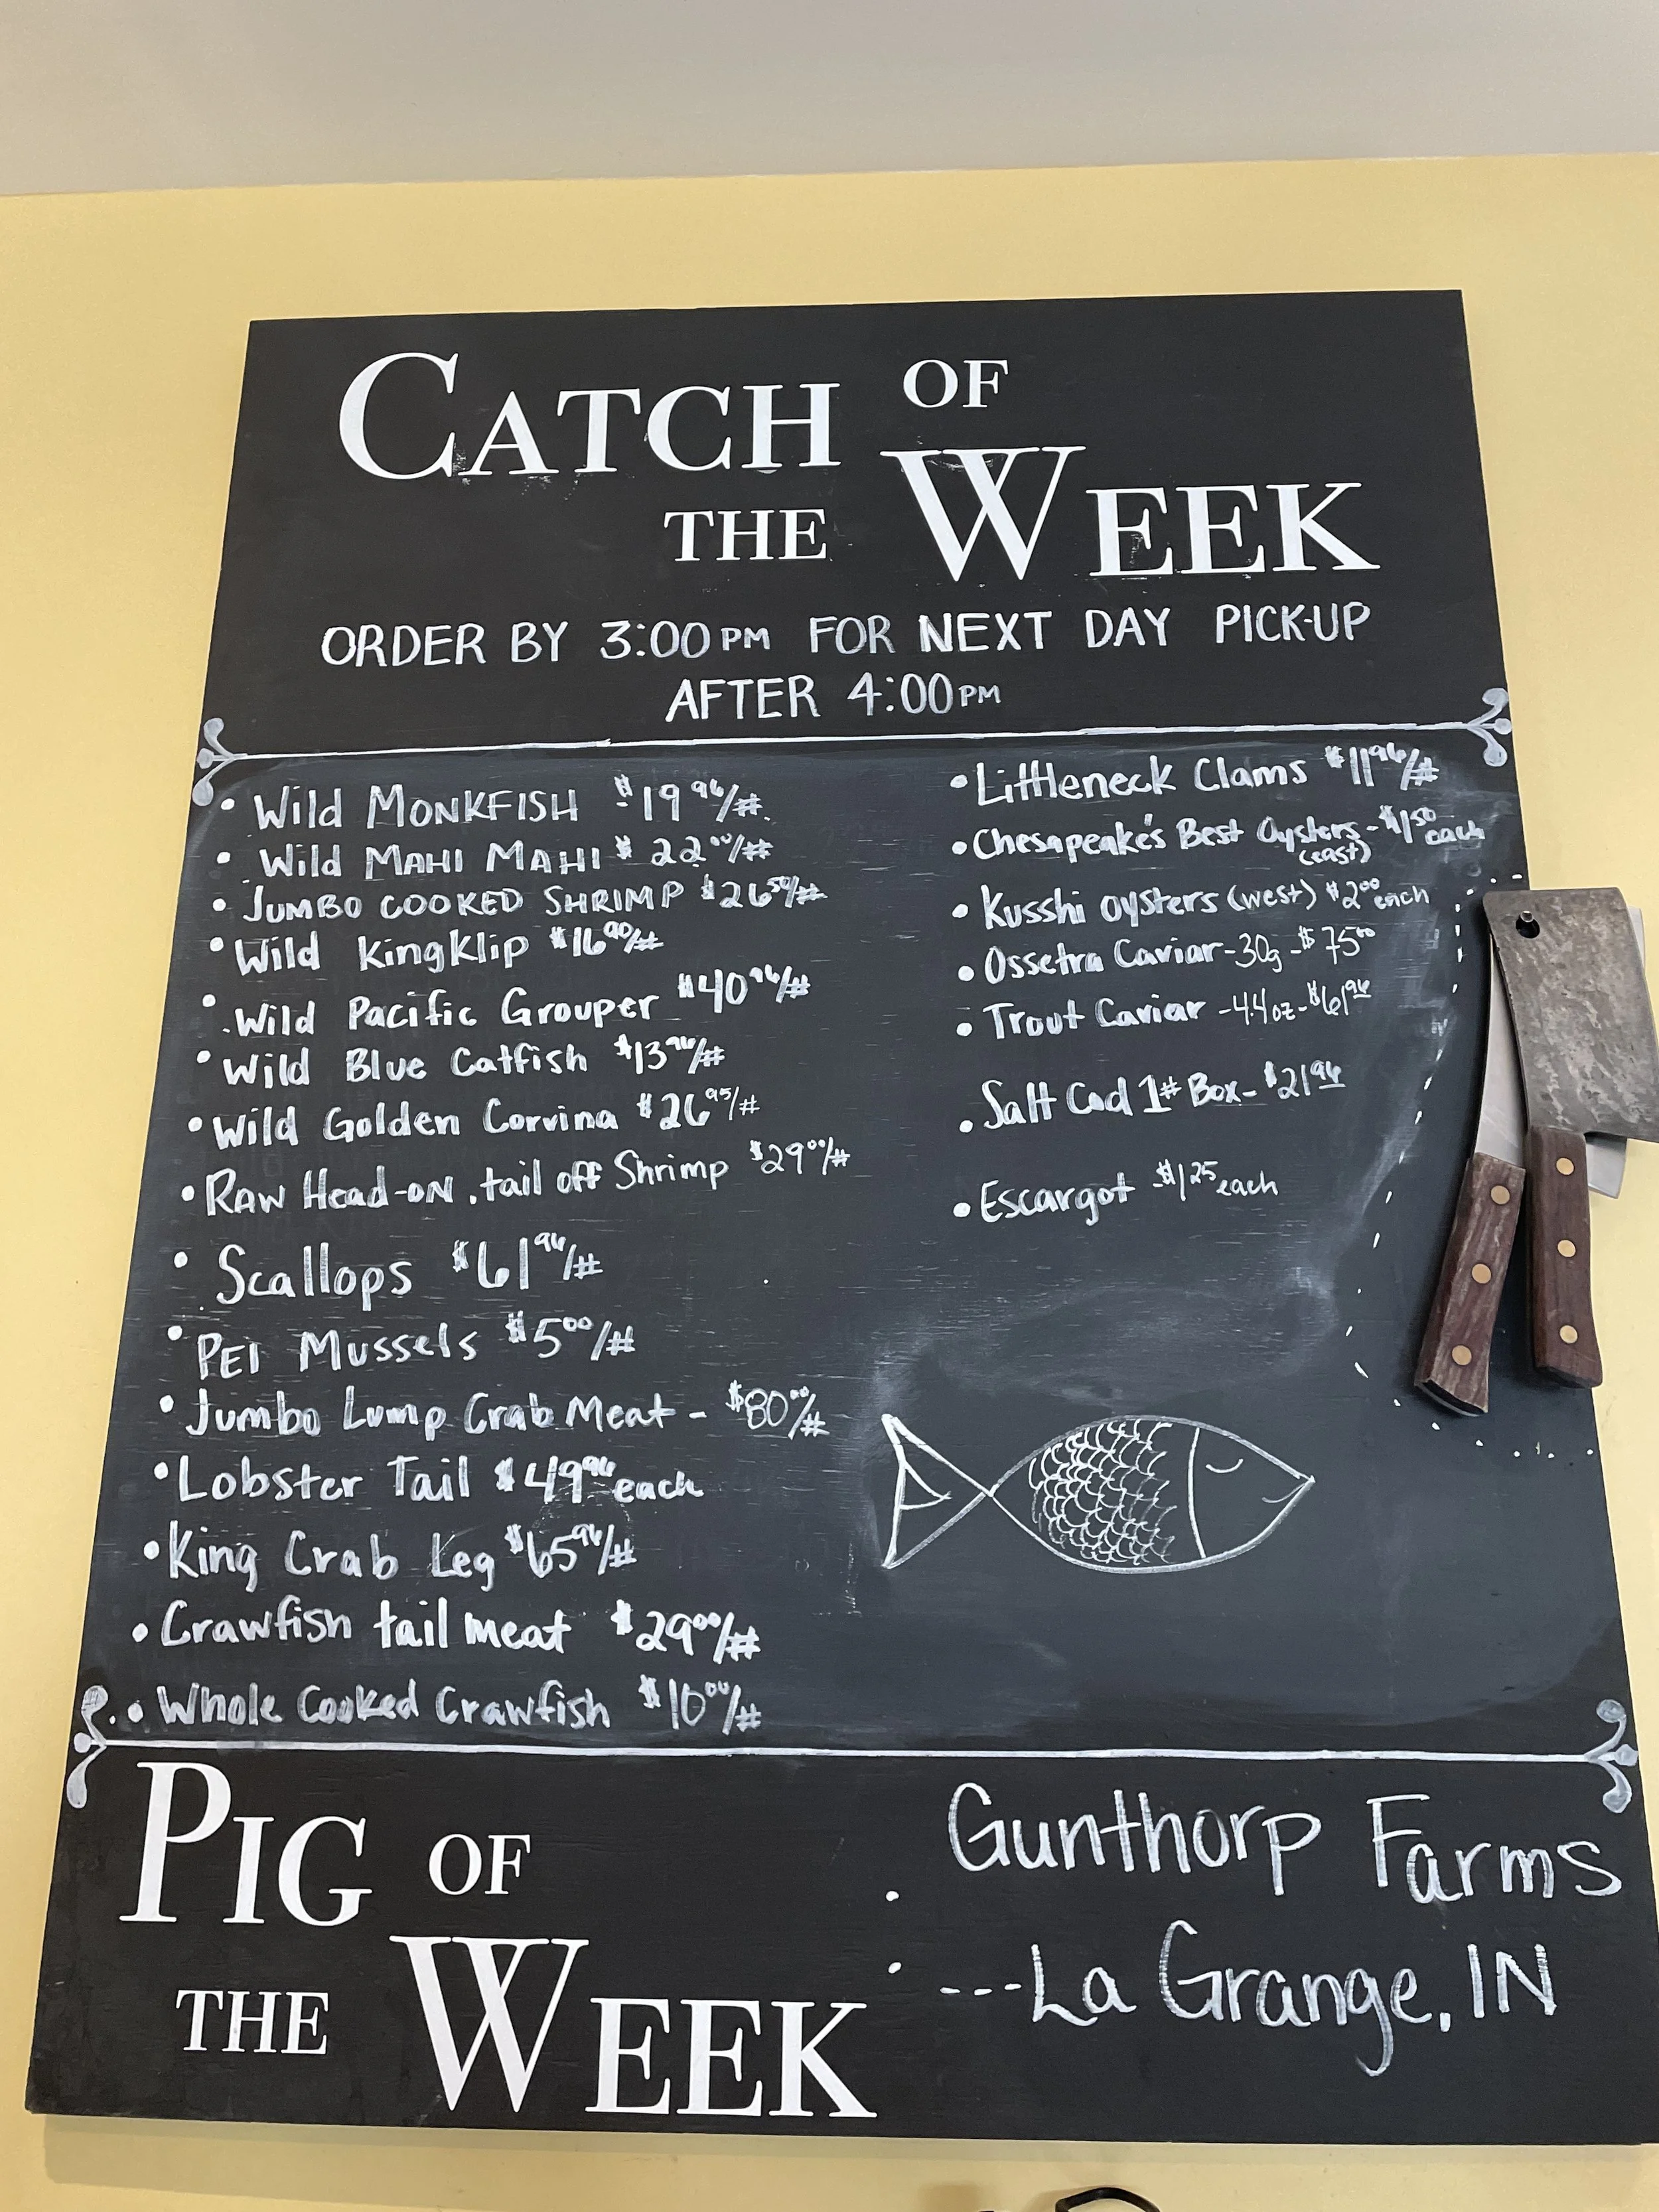 CATCH OF
THE WEEK
ORDER BY 3:00PM FOR NEXT DAY PICK-UP
AFTER 4:00PM
• Wild MONKFISH $19.96/#
• Wild MAHI MAHI $22.00/#
• JUMBO COOKED SHRIMP $26.50/#
• Wild KingKlip $16.90/#
• Wild Pacific Grouper $40.96/#
• Wild Blue Catfish $13.96/#
• Wild Golden Corvina $26.95/#
• RAW Head-on, tail off Shrimp $29.00/#
• Scallops $61.96/#
• PEI Mussels $5.00/#
• Jumbo Lump Crab Meat - $80.00/#
• Lobster Tail $49.96 each
• King Crab Leg $65.96/#
• Crawfish tail meat $29.00/#
• Whole Cooked Crawfish $10.00/#
• Littleneck Clams $11.96/#
• Chesapeake's Best Oysters - $1.50 each
(east)
• Kusshi oysters (west) $2.00 each
• Ossetra Caviar - 30g - $75.00
• Trout Caviar - 4.4oz - $61.96
• Salt Cod 1# Box - $21.96
• Escargot - $1.25 each
PIG OF
THE WEEK
• Gunthorp Farms
• ---La Grange, IN